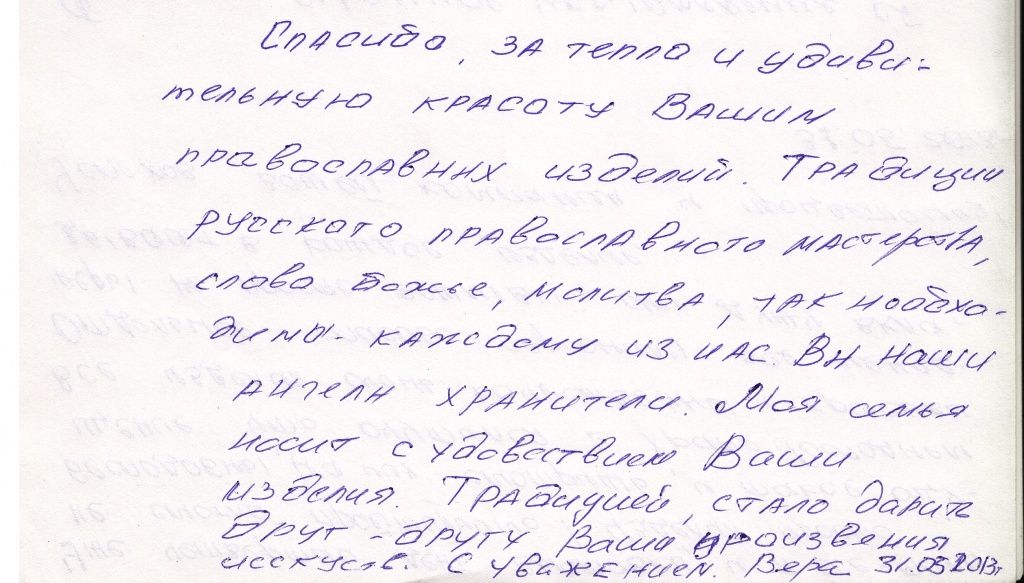 Спасибо, за тепло и удиви-
тельную красоту Вашим
православных изделий. Традиции
русского православного мастерства,
слова Божье, молитва, так необхо-
димы каждому из нас. Вы наши
ангелы хранители. Моя семья
носит с удовествием Ваши
изделия. Традицией, стало дарить
друг-другу Ваши произвения
исскуств. С уважением. Вера 31.05 2013г